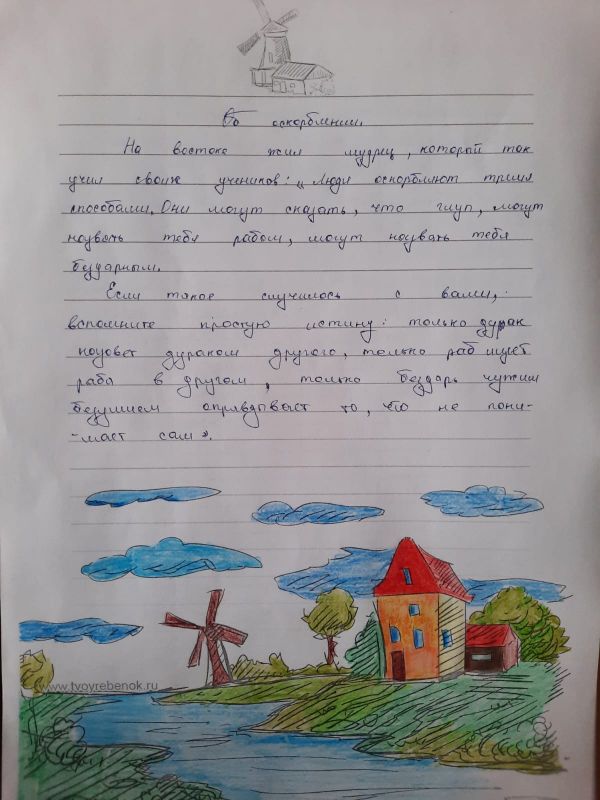 Об оскорблении.
На востоке жил мудрец, который так
учил своих учеников: „Люди оскорбляют тремя
способами. Они могут сказать, что глуп, могут
назвать тебя рабом, могут назвать тебя
бездарным.
Если такое случилось с вами,
вспомните простую истину: только дурак
назовет дураком другого, только раб ищет
раба в другом, только бездарь чужим
безумием оправдывает то, что не пони-
-мает сам".
www.tvoyrebenok.ru